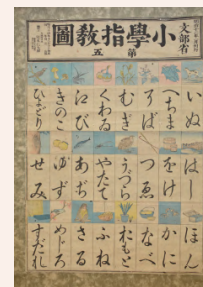 文部省
小學指敎圖
第五
いぬ
へちま
そば
むぎ
くわゐ
えび
きのこ
ひよどり
はし
をけ
つゑ
うづら
やたて
あぢ
ゆず
せみ
ほん
かに
なべ
おもと
ふね
さる
めじろ
すだれ